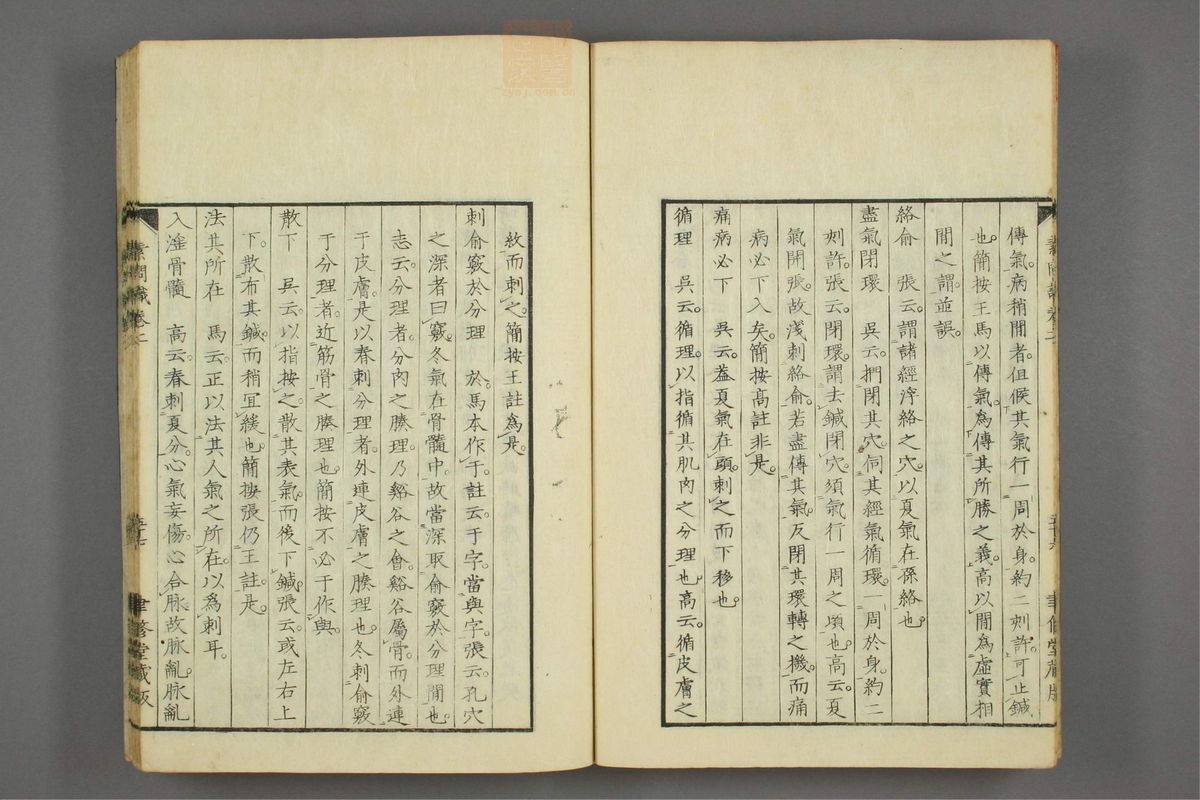 傳氣病稍間者但候其氣行一周於身約二刻許可止鍼
也簡按王馬以傳氣為傳其所勝之義高以間為虛實相
間之謂並誤
絡俞　張云謂諸經浮絡之穴以夏氣在孫絡也
盡氣閉環　吳云捫閉其穴伺其經氣循環一周於身約二
刻許張云閉環謂去鍼閉穴須氣行一周之頃也高云夏
氣開張故淺刺絡俞若盡傳其氣反閉其環轉之機而痛
病必下入矣簡按高註非是
痛病必下　吳云蓋夏氣在頭刺之而下移也
循理　吳云循理以指循其肌肉之分理也高云循皮膚之
紋而刺之簡按王註為是
刺俞竅於分理　於馬本作于註云于字當與字張云孔穴
之深者曰竅冬氣在骨髓中故當深取俞竅於分理間也
志云分理者分肉之腠理乃谿谷之會谿谷屬骨而外連
于皮膚是以春刺分理者外連皮膚之腠理也冬刺俞竅
于分理者近筋骨之腠理也簡按不必于作與
散下　吳云以指按之散其表氣而後下鍼張云或左右上
下散布其鍼而稍宜緩也簡按張仍王註是
法其所在　馬云正以法其人氣之所在以為刺耳
入淫骨髓　高云春刺夏分心氣妄傷心合脉故脉亂脉亂
素問識卷二
聿修堂藏版